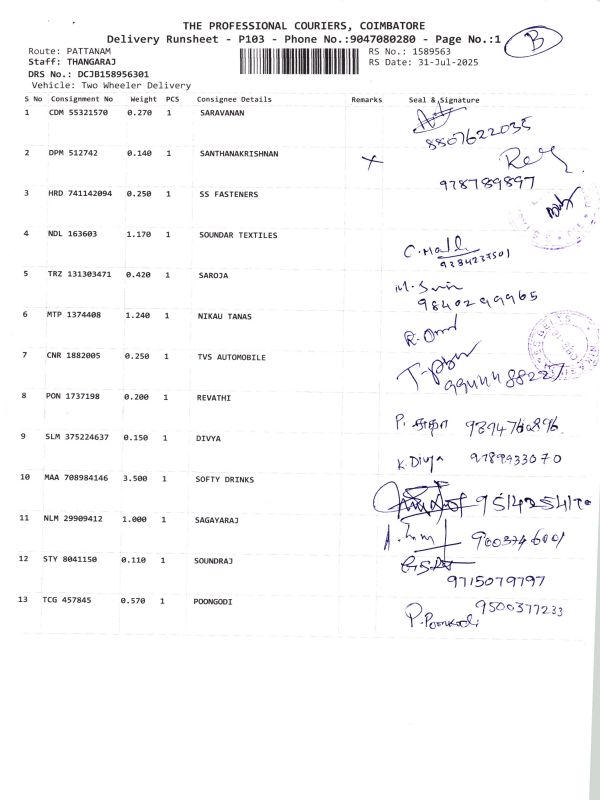 THE PROFESSIONAL COURIERS, COIMBATORE
Delivery Runsheet - P103 - Phone No.:9047080280 - Page No.:1
B
Route: PATTANAM
RS No.: 1589563
Staff: THANGARAJ
RS Date: 31-Jul-2025
DRS No.: DCJB158956301
Vehicle: Two Wheeler Delivery
S No Consignment No Weight PCS Consignee Details Remarks Seal & Signature
1 CDM 55321570 0.270 1 SARAVANAN
8807622035
2 DPM 512742 0.140 1 SANTHANAKRISHNAN X
978789897
3 HRD 741142094 0.250 1 SS FASTENERS
4 NDL 163603 1.170 1 SOUNDAR TEXTILES
5 TRZ 131303471 0.420 1 SAROJA
9840299965
6 MTP 1374408 1.240 1 NIKAU TANAS
7 CNR 1882005 0.250 1 TVS AUTOMOBILE
8 PON 1737198 0.200 1 REVATHI
9 SLM 375224637 0.150 1 DIVYA
K. Divya 9789933070
10 MAA 708984146 3.500 1 SOFTY DRINKS
11 NLM 29909412 1.000 1 SAGAYARAJ
12 STY 8041150 0.110 1 SOUNDRAJ
9715079797
13 TCG 457845 0.570 1 POONGODI
9500377233
P. Poonkodi